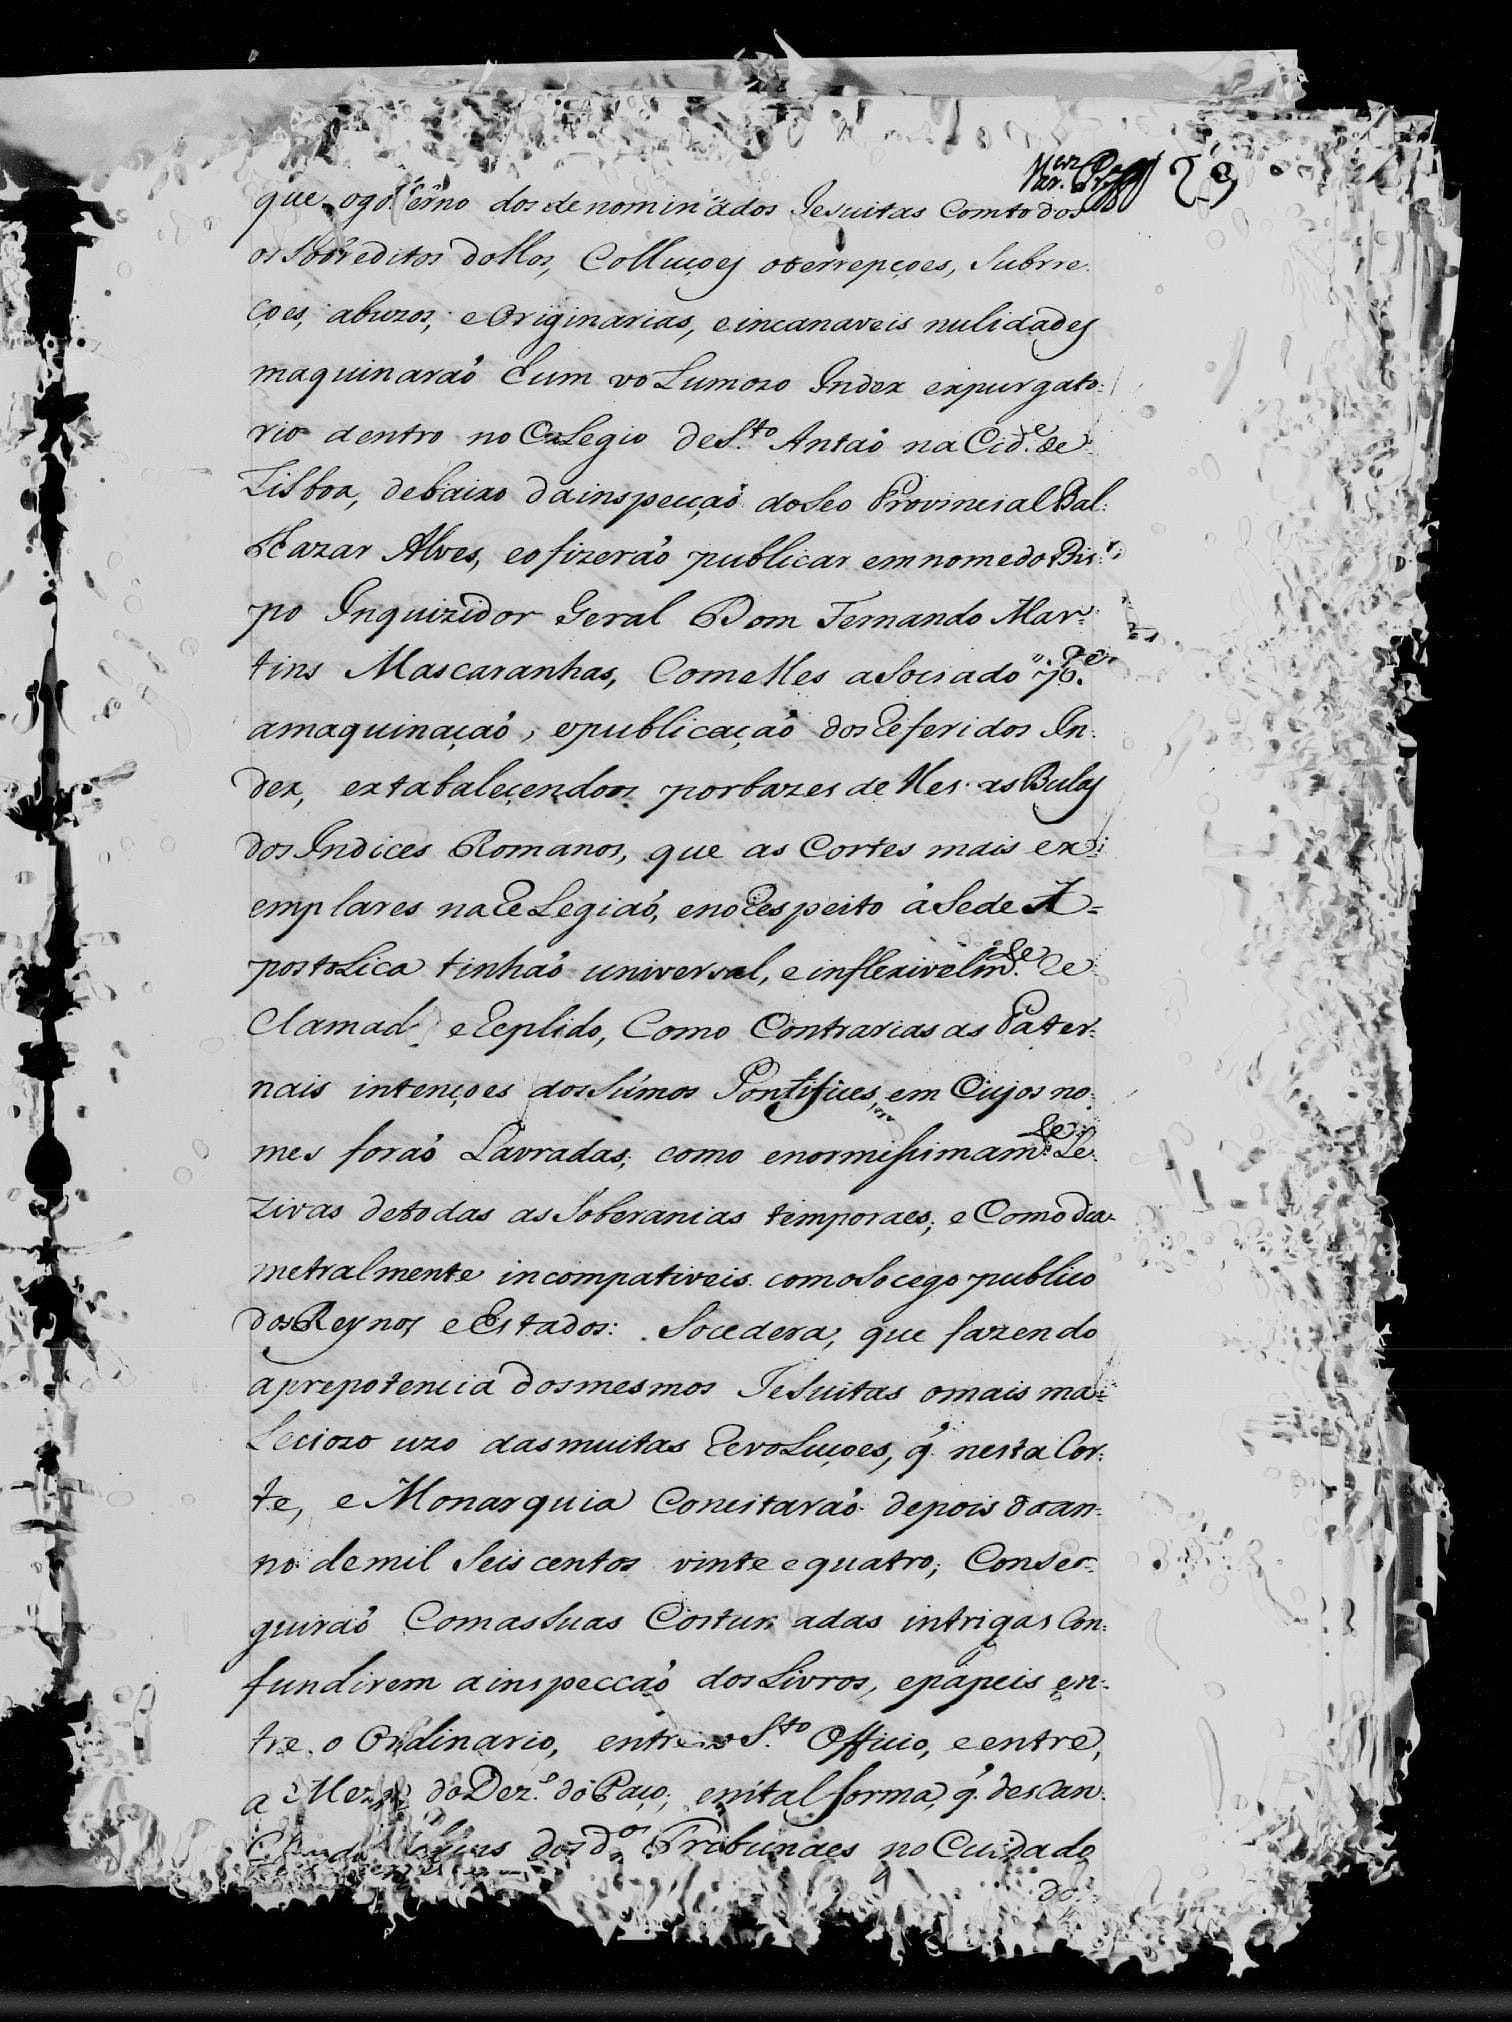 29
que ogoverno dos denominados Jesuitas Comtodos
os Sobreditos dollos, Colluçoes oterrepçoes, Subrre
çoes, abuzos, e Originarias, e incanaveis nulidades
maquinaraõ hum voLumozo Index expurgato:
rio dentro no CoLegio de S.to Antaõ na Cid.e de
Lisboa, debaixo da inspecçaõ do Seo Provincial Bal:
thazar Alves, e o fizeraõ publicar em nome do Bis:
po Inquizidor Geral Dom Fernando Mar:
tins Mascaranhas, Com elles aSociado p.a
a maquinaçaõ, e publicaçaõ dos Referidos In:
dex, extabaleçendoos por bazes delles as Bulas
dos Indices Romanos, que as Cortes mais ex:
emplares na ReLegiaõ, e no Respeito á Sede A=
postoLica tinhaõ universal, e inflexivelm.te Re
Clamad e Replido, Como Contrarias as Pater:
nais intençoes dos Súmos Pontifices, em Cujos no:
mes foraõ Lavradas; como enormissimam.te Le:
zivas de todas as Soberanias temporaes; e Como dia
metralmente incompativeis com o Socego publico
dos Reynos e Estados: Socedera, que fazendo
a prepotencia dos mesmos JeSuitas o mais ma=
Leciozo uzo das muitas RevoLuçoes, q̃ nesta Cor:
te, e Monarquia Concitaraõ depois do an:
no de mil Seis centos vinte e quatro; Conse:
guiraõ Com as Suas Costumadas intrigas Con:
fundirem a inspeccaõ dos Livros, e papeis en:
tre o Ordinario, entre o S.to Officio, e entre,
a Meza do Dez.o do Paço; em tal forma, q̃ descan:
Çando huns dos d.os Tribunaes no Cuidado
dos